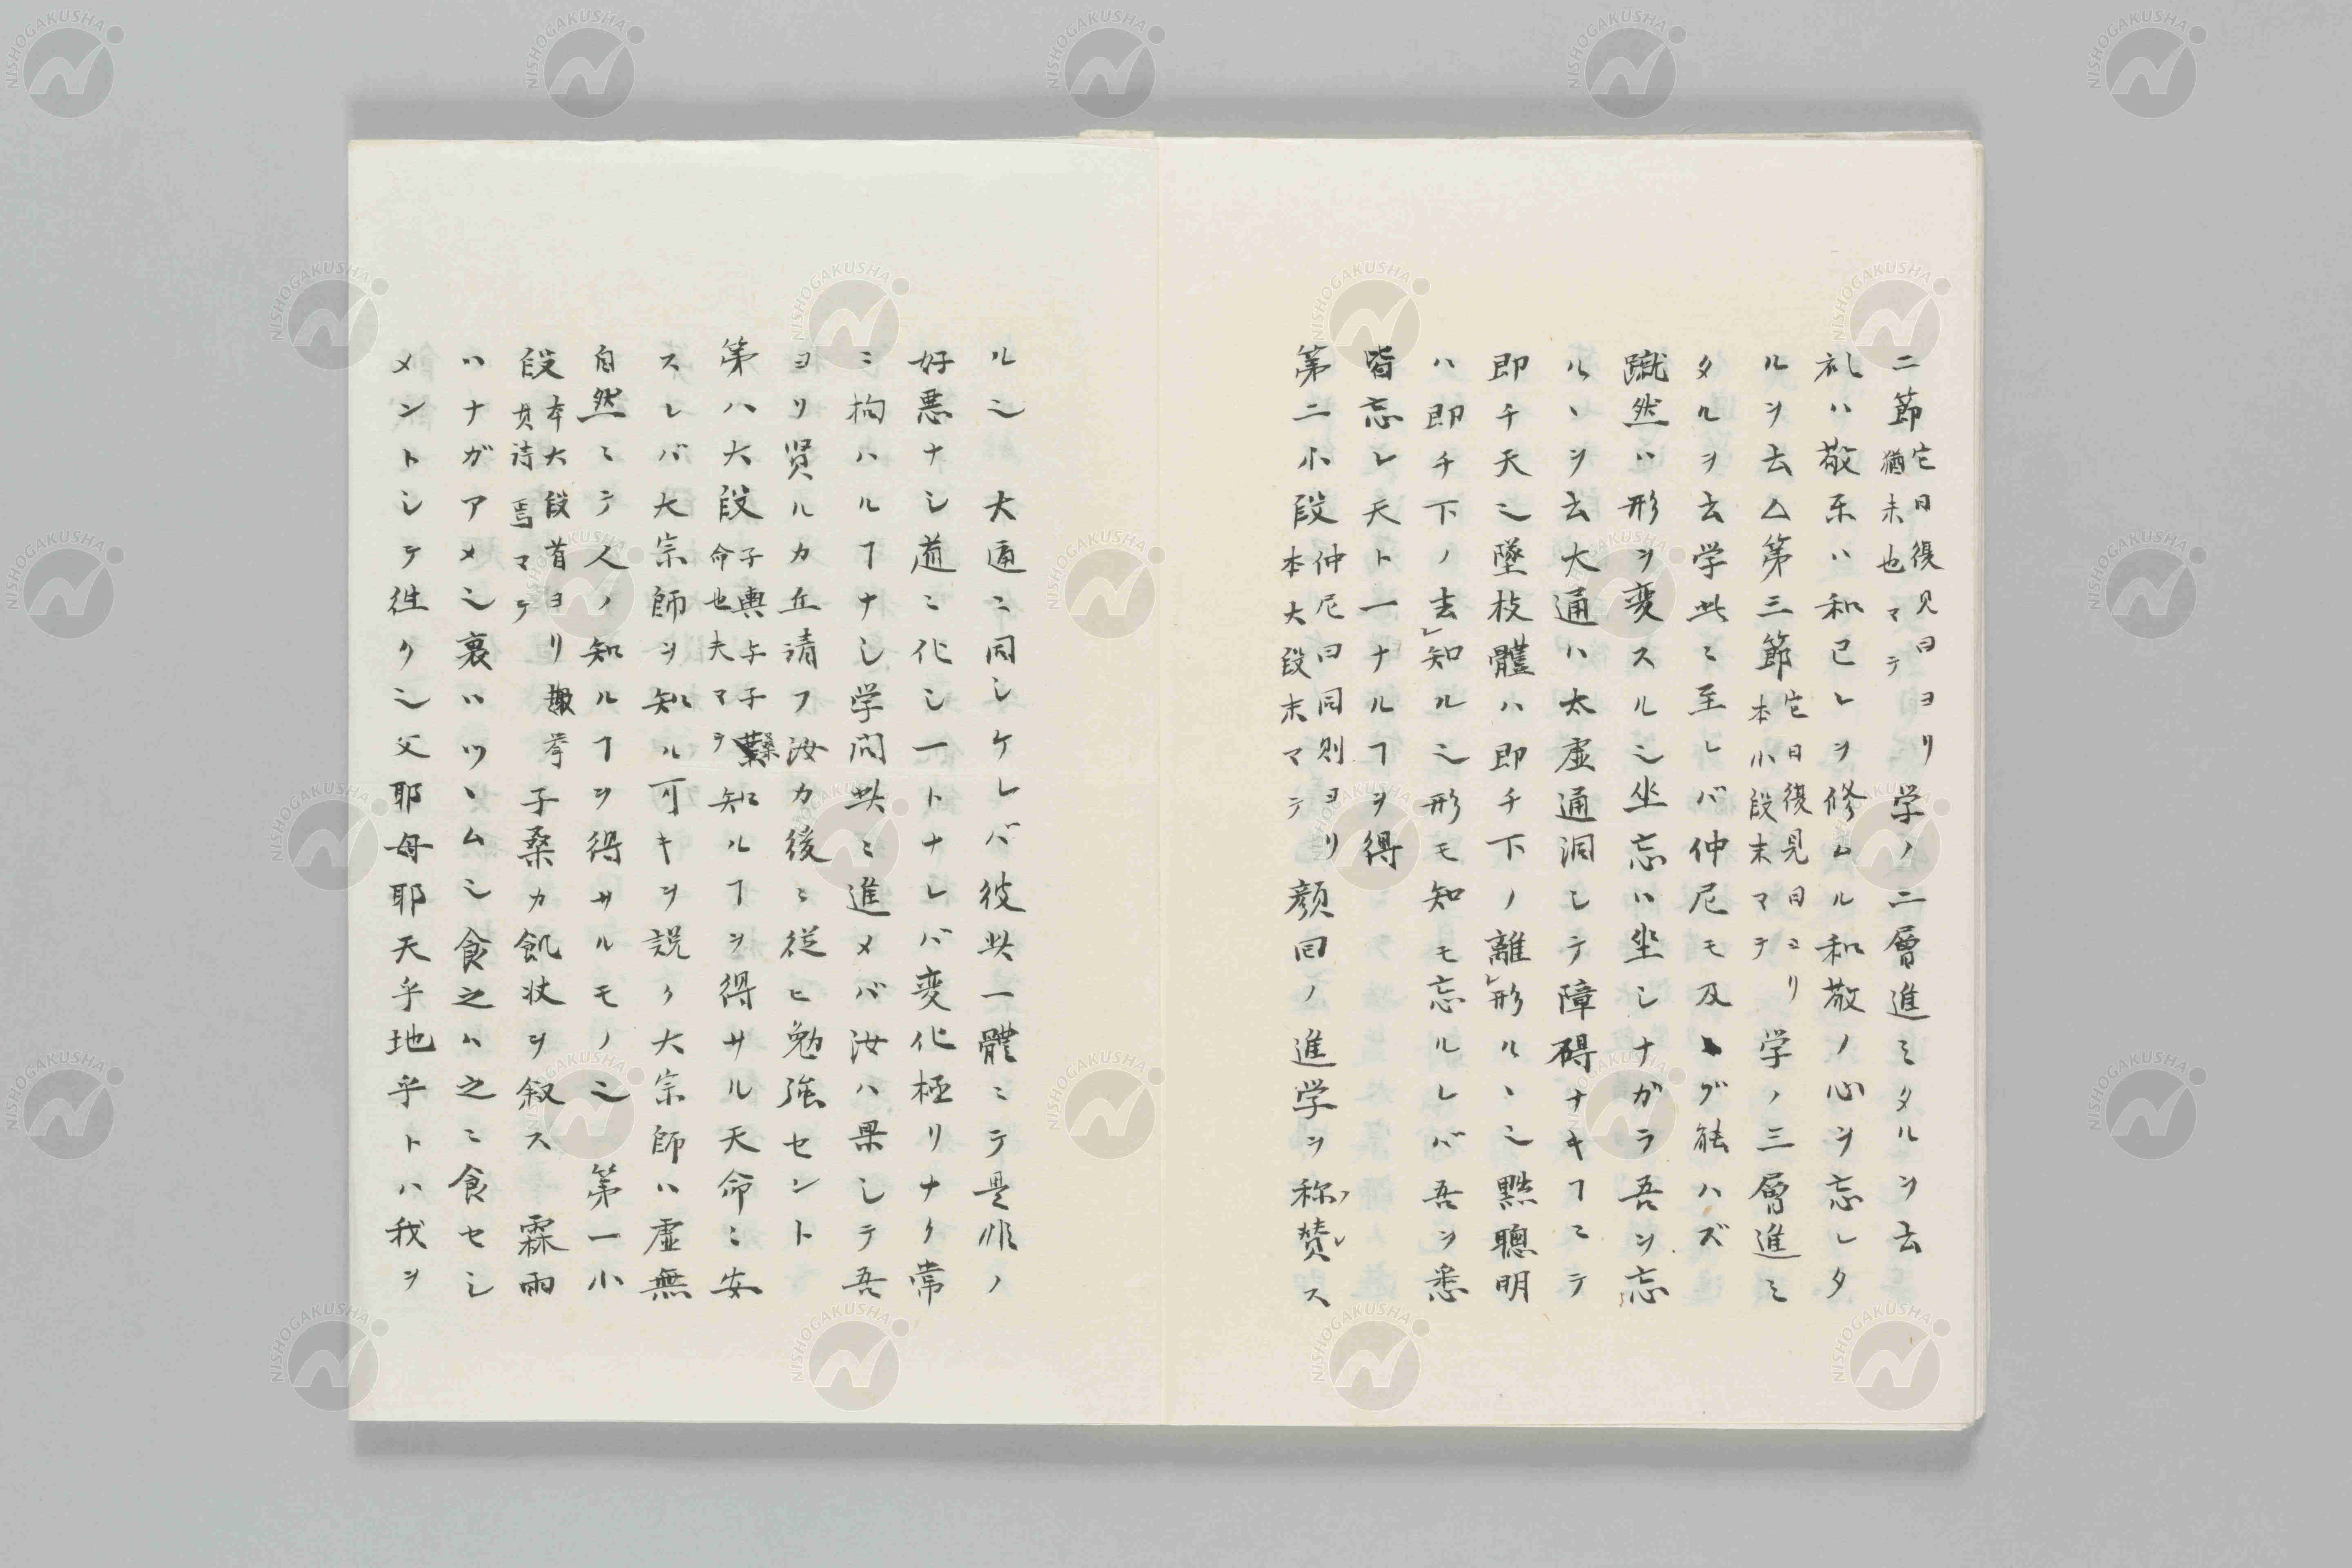 二節它日復見曰ヨリ猶未也マテ学ノ二層進ミタルヲ去
礼ハ敬樂ハ和己レヲ修ムル和敬ノ心ヲ忘レタ
ルヲ去△第三節它日復見曰ヨリ本小段末マテ学ノ三層進ミ
タルヲ去学此ニ至レバ仲尼モ及ヽグ能ハズ
蹴然ハ形ヲ変スル也坐忘ハ坐シナガラ吾ヲ忘
ルヽヲ去大通ハ太虚通洞シテ障碍ナキヿニテ
即チ天也墜枝體ハ即チ下ノ離レ形ルヽ也黜聰明
ハ即チ下ノ去レ知ル也形モ知モ忘ルレバ吾ヲ悉
皆忘レ天ト一ナルヿヲ得
第二小段仲尼曰同則ヨリ本大段末マテ顔回ノ進学ヲ称レ賛レス
ル也 大通ニ同シケレバ彼此一體ニテ是非ノ
好悪ナシ道ニ化シ一トナレバ変化極リナク常
ニ拘ハルヿナシ学問此ニ進メバ汝ハ果シテ吾
ヨリ賢ルカ丘請フ汝カ後ニ従ヒ勉強セント
第八大段子輿与子桑命也夫マテ知ルヿヲ得サル天命ニ安
スレバ大宗師ヲ知ル可キヲ説ク大宗師ハ虚無
自然ニテ人ノ知ルヿヲ得サルモノ也 第一小
段本大段首ヨリ趨挙其詩焉マテ子桑カ飢状ヲ叙ス 霖雨
ハナガアメ也裹ハツヽム也食之ハ之ニ食セシ
メントシテ往ク也父耶母耶天乎地乎トハ我ヲ